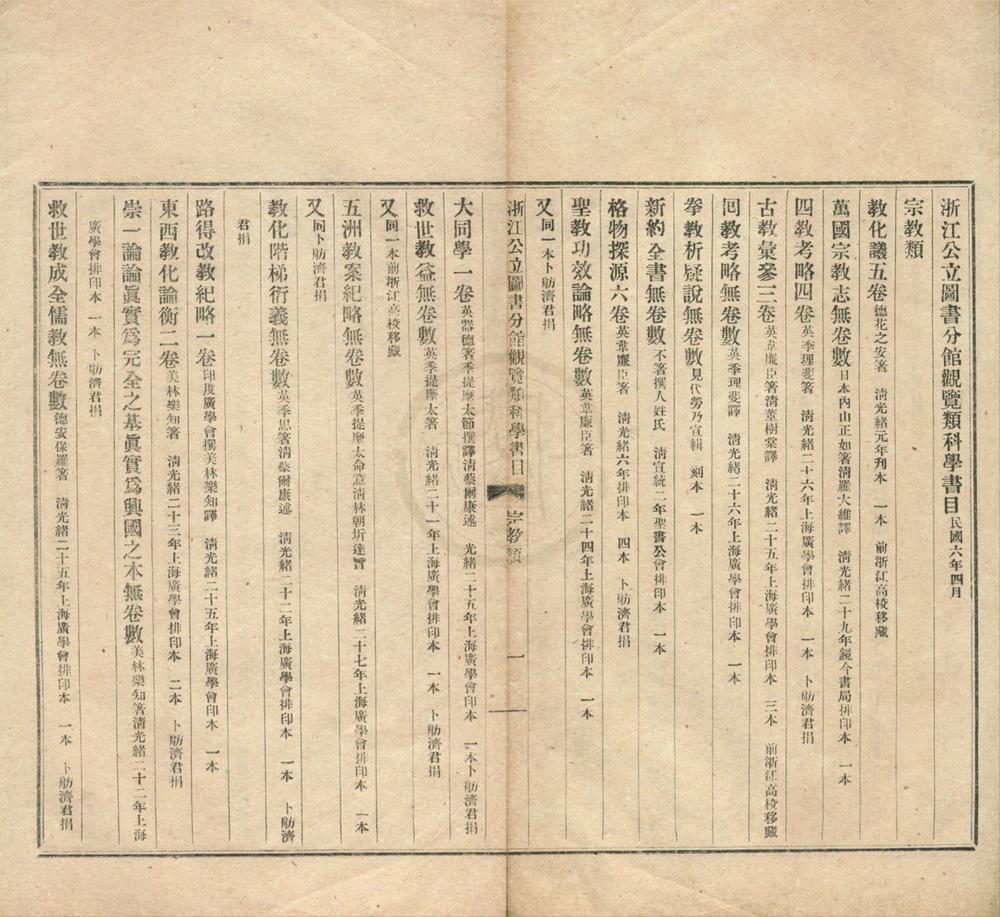 浙江公立圖書分館觀覽類科學書目民國六年四月
宗教類
教化議五卷德花之安著 清光緒元年刋本 一本 前浙江高校移藏
萬國宗教志無卷數日本內山正如著清羅大維譯 清光緒二十九年鏡今書局排印本 一本
四教考略四卷英季理斐著 清光緒二十六年上海廣學會排印本 一本 卜舫濟君捐
古教彙參三卷英韋廉臣著清董樹棠譯 清光緒二十五年上海廣學會排印本 三本 前浙江高校移藏
回教考略無卷數英季理斐譯 清光緒二十六年上海廣學會排印本 一本
拳教析疑說無卷數見代勞乃宣輯 刻本 一本
新約全書無卷數不著撰人姓氏 清宣統二年聖書公會排印本 一本
格物探源六卷英韋廉臣著 清光緒六年排印本 四本 卜舫濟君捐
聖教功效論略無卷數英韋廉臣著 清光緒二十四年上海廣學會排印本 一本
又同一本卜舫濟君捐
浙江公立圖書分館觀覽類科學書目 宗教類 一
大同學一卷英器德著季提摩太節撰譯清蔡爾康述 光緒二十五年上海廣學會印本 一本卜舫濟君捐
救世教益無卷數英季提摩太著 清光緒二十一年上海廣學會排印本 一本 卜舫濟君捐
又同一本前浙江高校移藏
五洲教案紀略無卷數英季提摩太命意清林朝圻達旨 清光緒二十七年上海廣學會排印本 一本
又同卜舫濟君捐
教化階梯衍義無卷數英季思著清蔡爾康述 清光緒二十二年上海廣學會排印本 一本 卜舫濟
君捐
路得改教紀略一卷印度廣學會撰美林樂知譯 清光緒二十五年上海廣學會印本 一本
東西教化論衡二卷美林樂知著 清光緒二十三年上海廣學會排印本 二本 卜舫濟君捐
崇一論論眞實爲完全之基眞實爲興國之本無卷數美林樂知著清光緒二十二年上海
廣學會排印本 一本 卜舫濟君捐
救世教成全儒教無卷數德安保羅著 清光緒二十五年上海廣學會排印本 一本 卜舫濟君捐